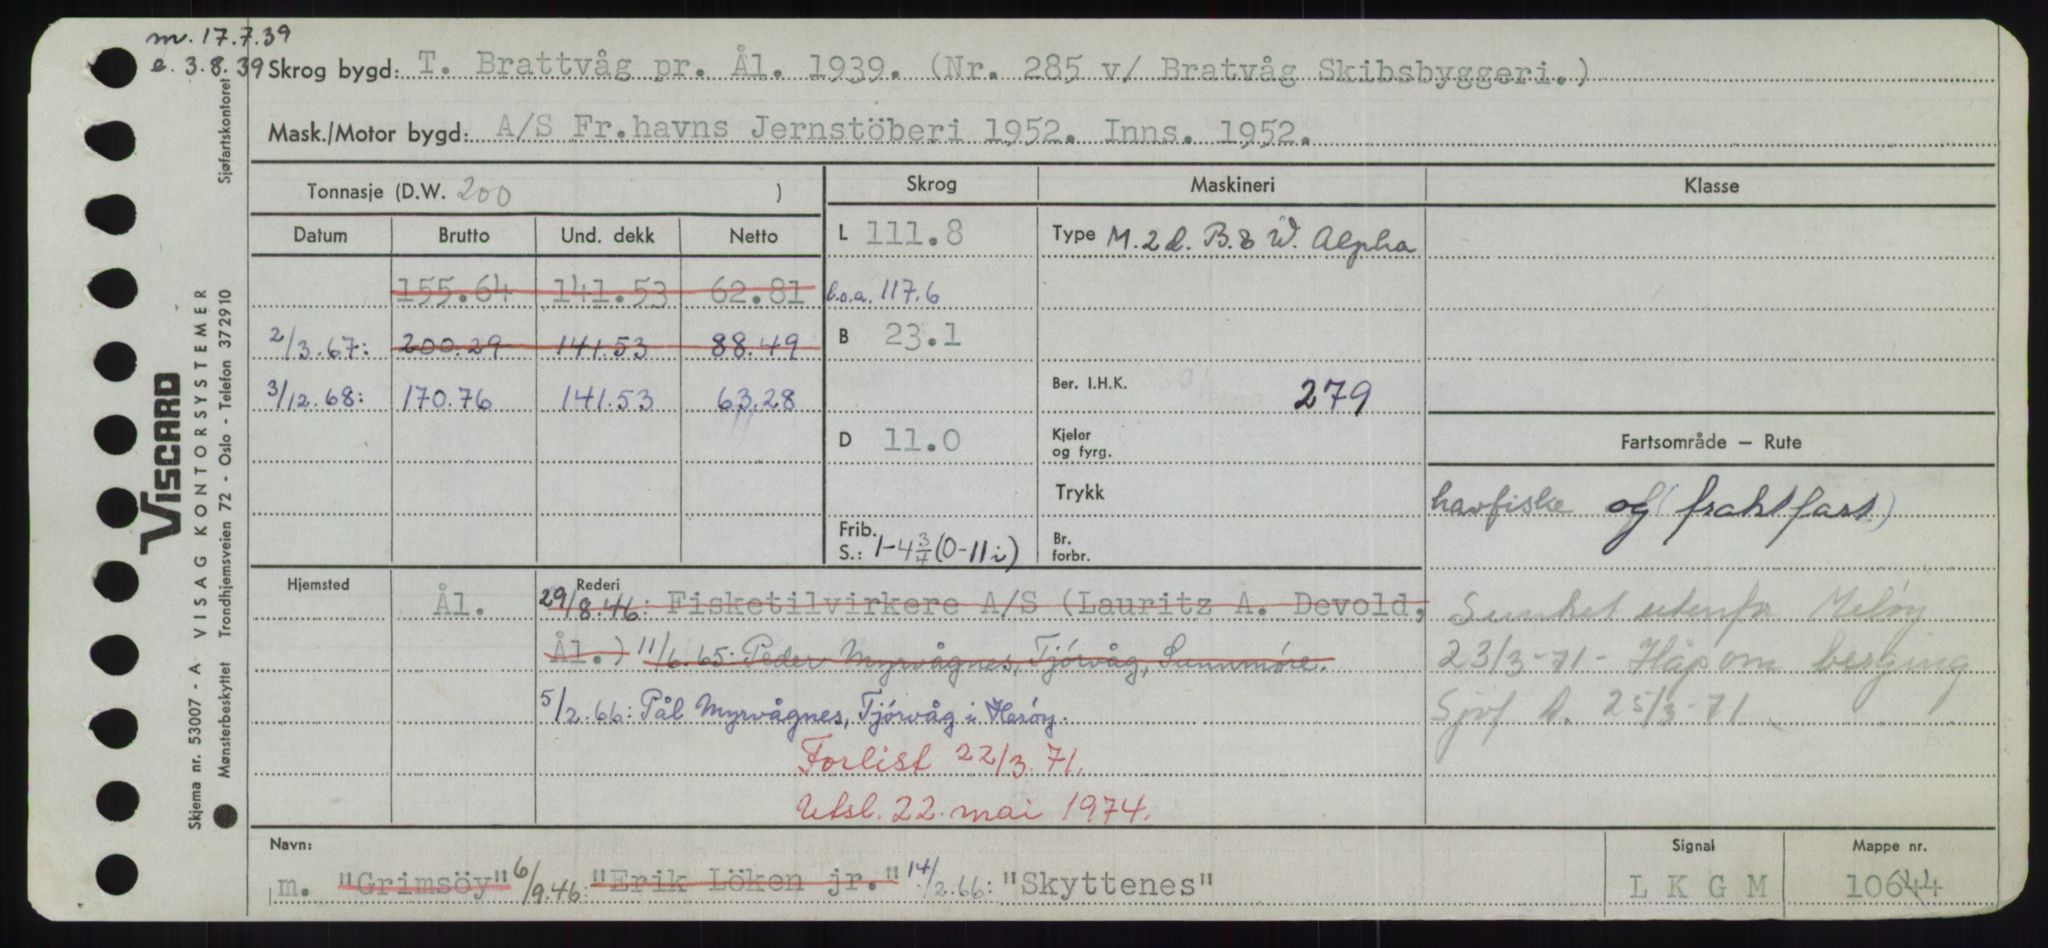 m. 17.7.39
e. 3.8.39 Skrog bygd: T. Brattvåg pr. Ål. 1939. (Nr. 285 v/ Bratvåg Skibsbyggeri.)
Mask./Motor bygd: A/S Fr.havns Jernstöberi 1952. Inns. 1952.
Tonnasje (D.W. 200 )
Skrog
Maskineri
Klasse
Datum Brutto Und. dekk Netto
155.64 141.53 62.81
2/3.67: 200.29 141.53 88.49
3/12.68: 170.76 141.53 63.28
L 111.8
l.o.a. 117.6
B 23.1
D 11.0
Frib.
S.: 1-4 3/4 (0-11 i)
Type M. 2 d. B. & W. Alpha
Ber. I.H.K. 279
Kjeler
og fyrg.
Trykk
Br.
forbr.
Fartsområde – Rute
havfiske og (fraktfart)
Sunket utenfor Meløy
23/3-71 - Håp om berging
Sjøf A. 25/3-71
Hjemsted
Ål.
Rederi
29/8.46: Fisketilvirkere A/S (Lauritz A. Devold,
Ål.) 11/6.65: Peder Myrvågnes, Tjórvåg, Sunnmóre.
5/2.66: Pål Myrvågnes, Tjórvåg i Heróy.
Forlist 22/3.71.
Utsl. 22. mai 1974.
Navn:
m. "Grimsöy" 6/9.46: "Erik Löken jr." 14/2.66: "Skyttenes"
Signal
L K G M
Mappe nr.
10644
Sjøfartskontoret
VISCARD
VISAG KONTORSYSTEMER
Skjema nr. 53007 - A
Trondhjemsveien 72 - Oslo - Telefon 372910
Mønsterbeskyttet